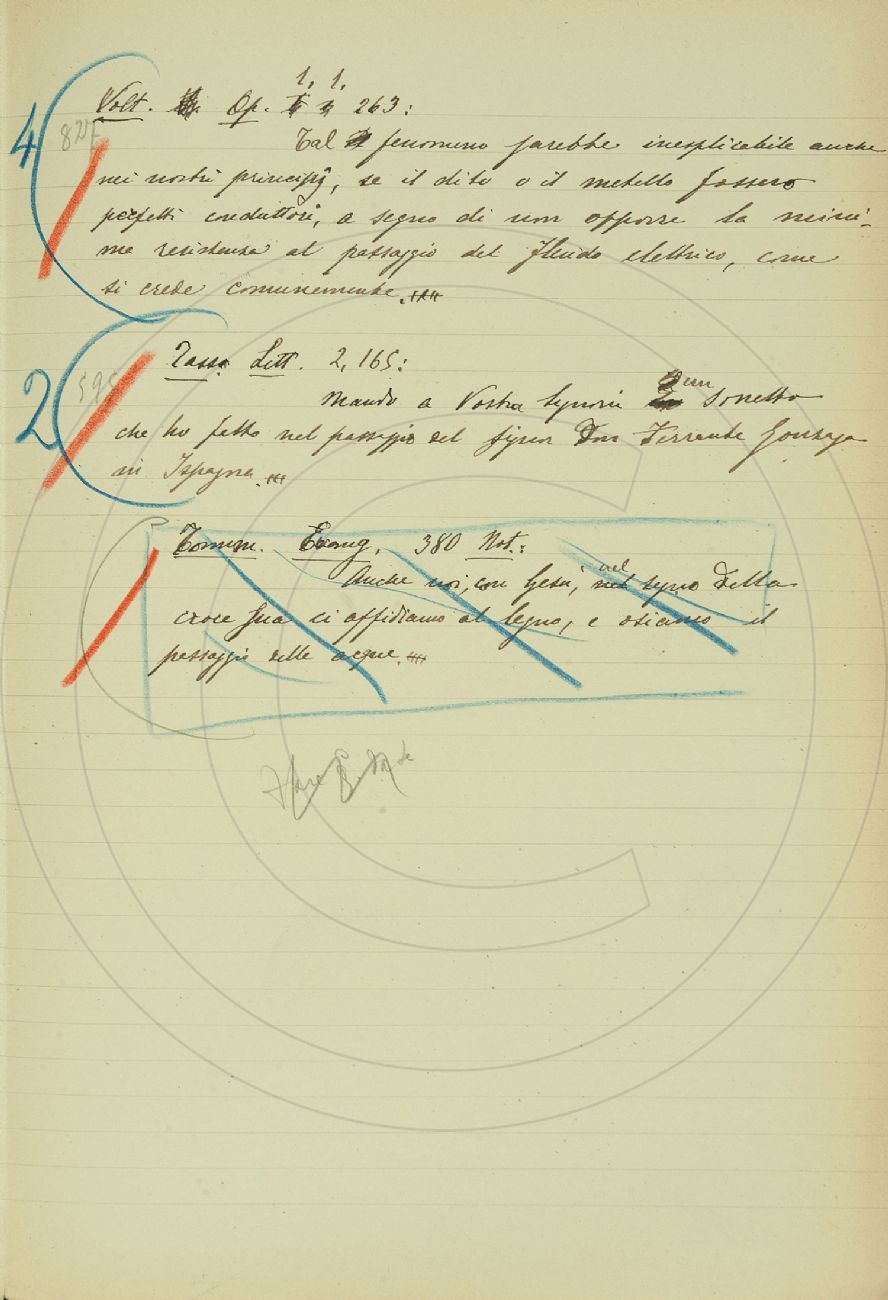 1, 1,
Volt. Op. 263:
4
Tal fenomeno sarebbe inesplicabile anche
nei nostri principj, se il dito o il metallo fossero
perfetti conduttori, a segno di non opporre la mini-
ma resistenza al passaggio del fluido elettrico, come
si crede comunemente.
Tass. Lett. 2, 165:
2
595
Mando a Vostra Signoria un sonetto
che ho fatto nel passaggio del signor Don Ferrante Gonzaga
in Ispagna.
Tomm. Evang. 380 Not.:
Anche noi, con Gesù, nel segno della
croce sua ci affidiamo al legno, e osiamo il
passaggio delle acque.